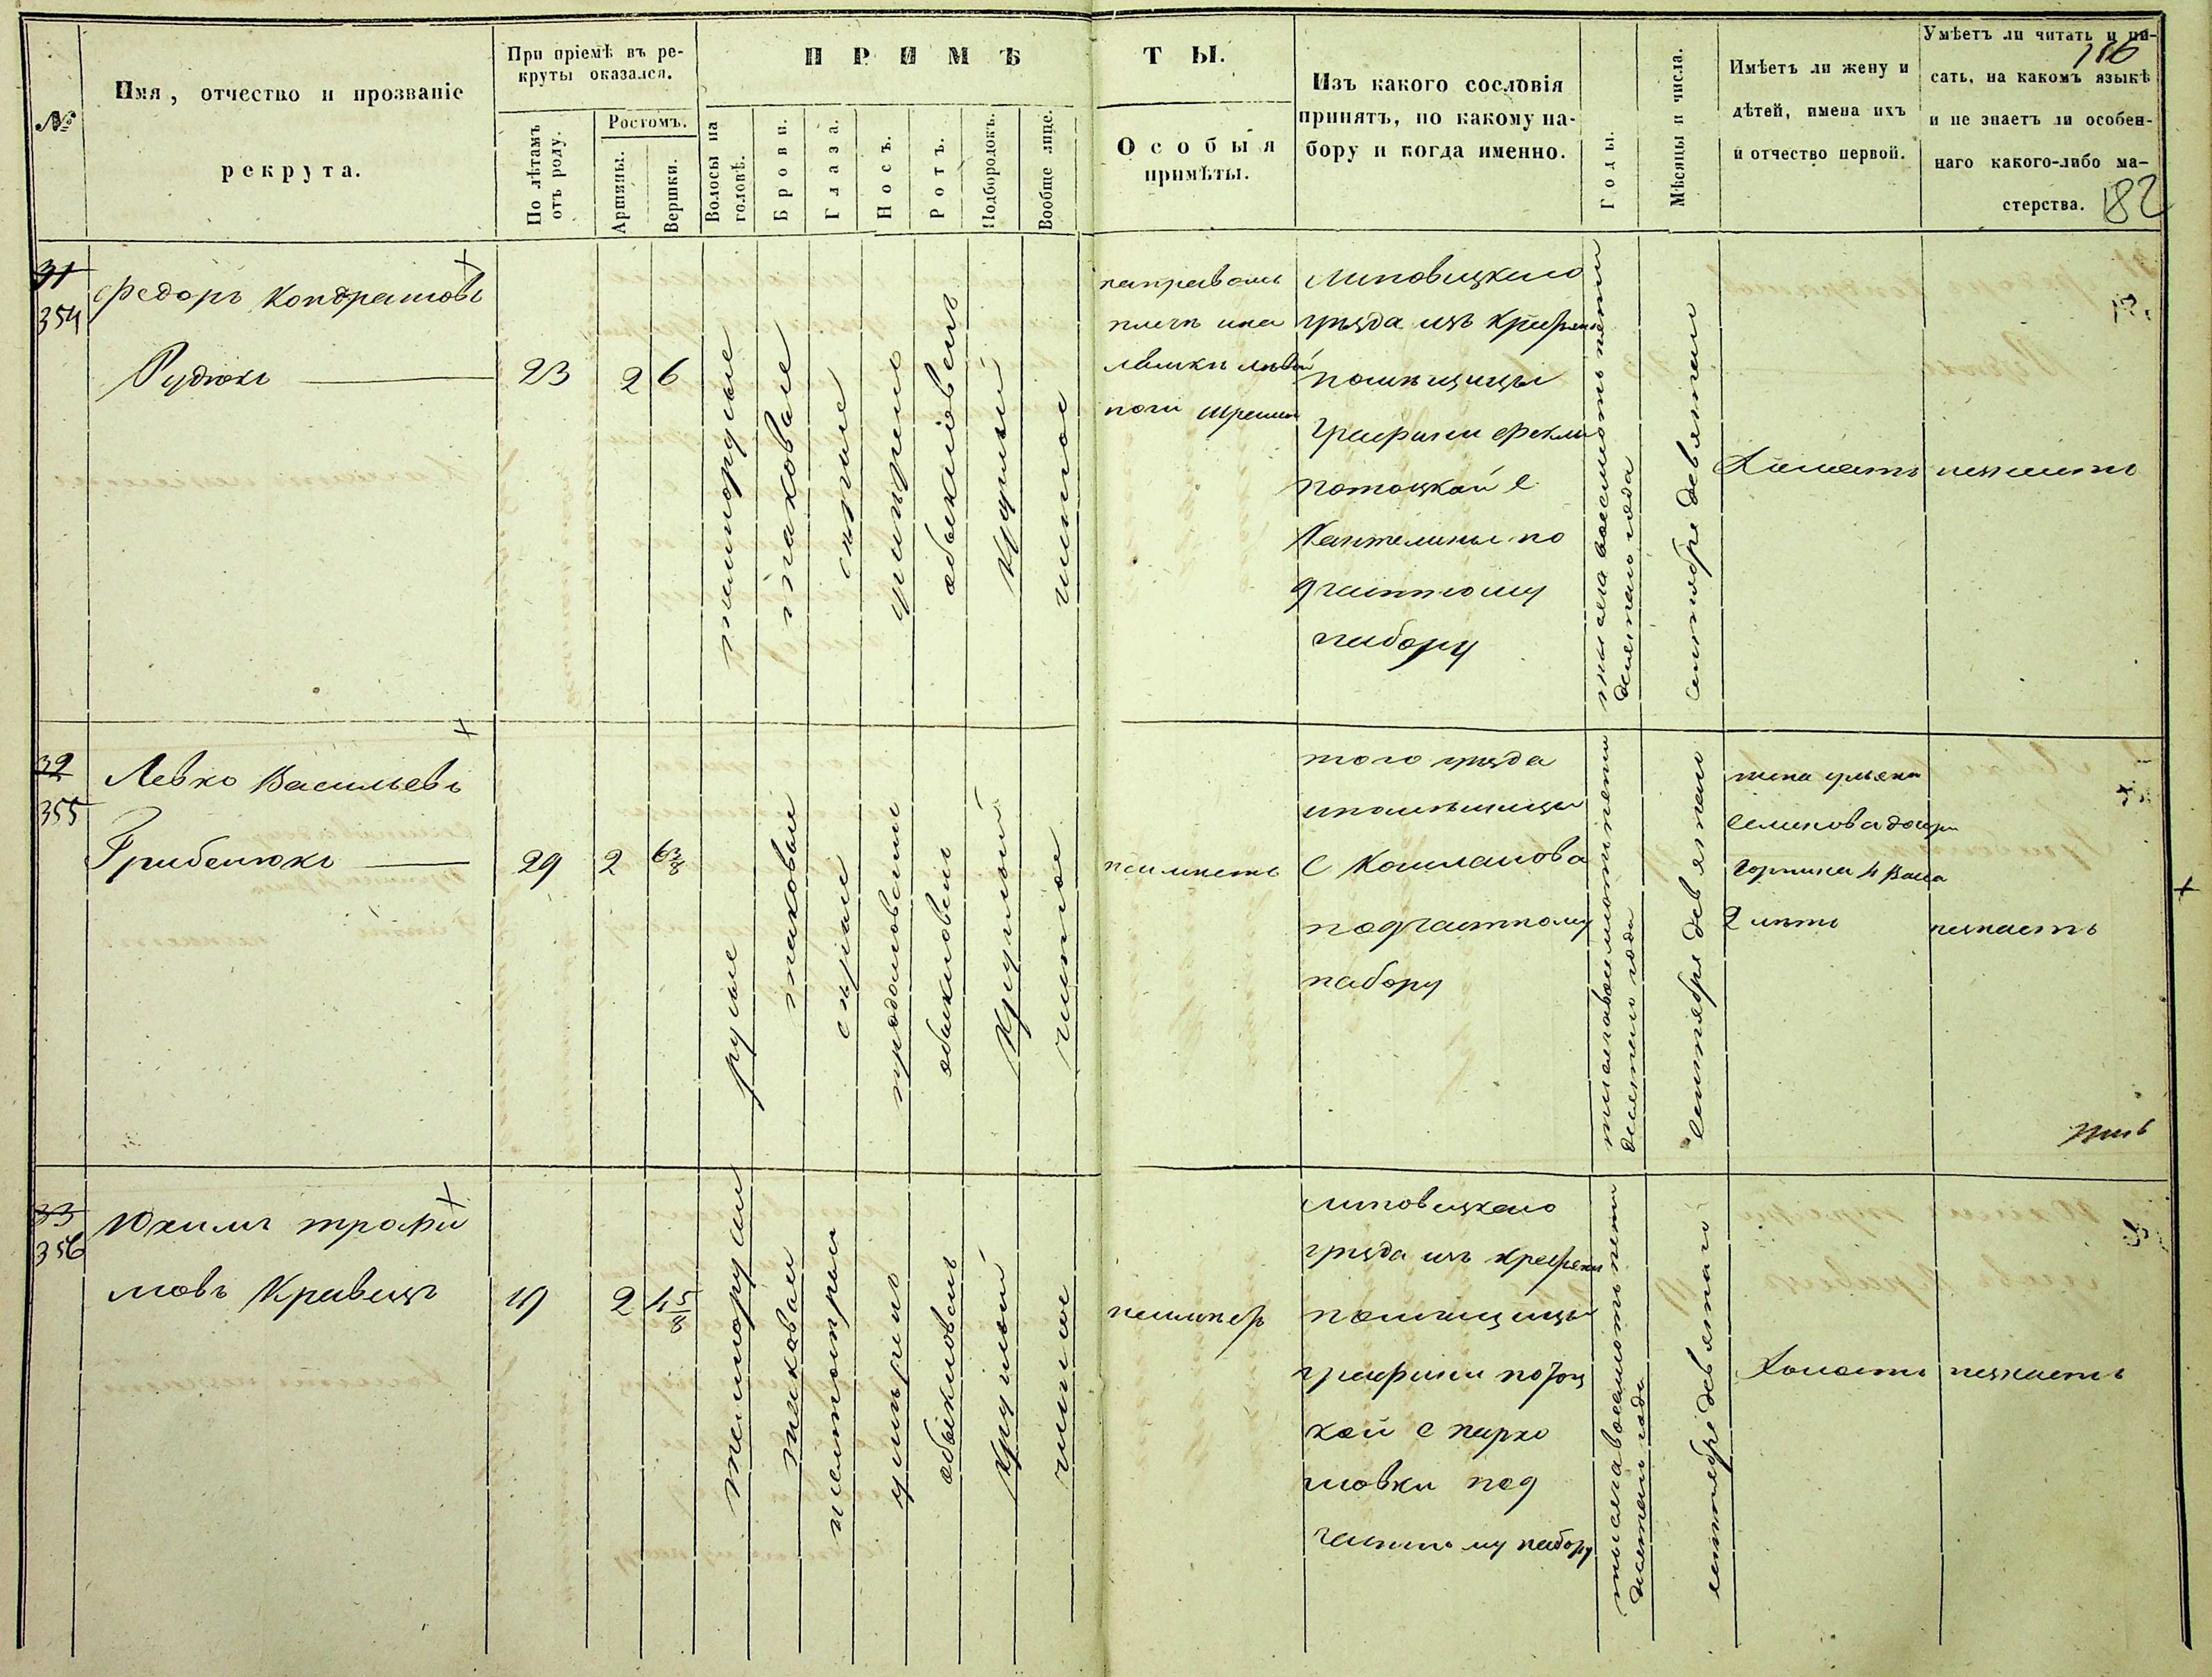 №
Имя, отчество и прозваніе
рекрута.
При пріемѣ въ ре-
круты оказался.
По лѣтамъ
отъ роду.
Ростомъ.
Аршины.
Вершки.
ПРИМѢ
ТЫ.
Волосы на
головѣ.
Брови.
Глаза.
Носъ.
Ротъ.
Подбородокъ.
Вообще лице.
Особыя
примѣты.
Изъ какого сословія
принятъ, по какому на-
бору и когда именно.
Годы.
Мѣсяцы и числа.
Имѣетъ ли жену и
дѣтей, имена ихъ
и отчество первой.
Умѣетъ ли читать и пи-
сать, на какомъ языкѣ
и не знаетъ ли особен-
наго какого-либо ма-
стерства.
186
182
31
354
Федоръ Кондратовъ
Рудюкъ
23
2
6
темнорусые
таковые
сѣрые
умѣренъ
обыкновенъ
круглый
чистое
на правомъ
плечѣ и на
ноги
Липовецкого
уѣзда изъ крестьянъ
помѣщицы
Графини Феклы
Потоцкой с
по
участному
набору
тысяча восемьсотъ пять
десятого года
сентября девятаго
Холостъ
незнаетъ
32
355
Левко Васильевъ
Грибенюкъ
29
2
6 3/8
русые
таковые
сѣрые
продолговатый
обыкновенъ
круглый
чистое
неимѣетъ
того уѣзда
ипомѣщицы
с
подчастному
набору
тысяча восемьсотъ пять
десятого года
сентября девятаго
жена ульяна
Семенова дочери
2 лѣтъ
незнаетъ
33
356
Юхимъ Трофи
мовъ Кравецъ
19
2
4 5/8
темнорусые
таковые
умѣренъ
обыкновенъ
круглый
чистое
Липовецкого
уѣзда изъ крестьянъ
помѣщицы
графини Потоц
кой с Нарко
мовки под
частному набору
тысяча восемьсотъ пять
десятого года
сентября девятаго
Холостъ
незнаетъ